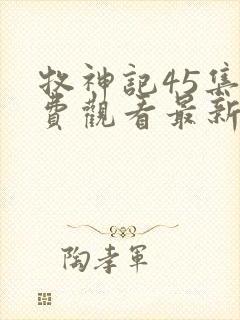 牧神記45集
費觀看最新
陶孝軍